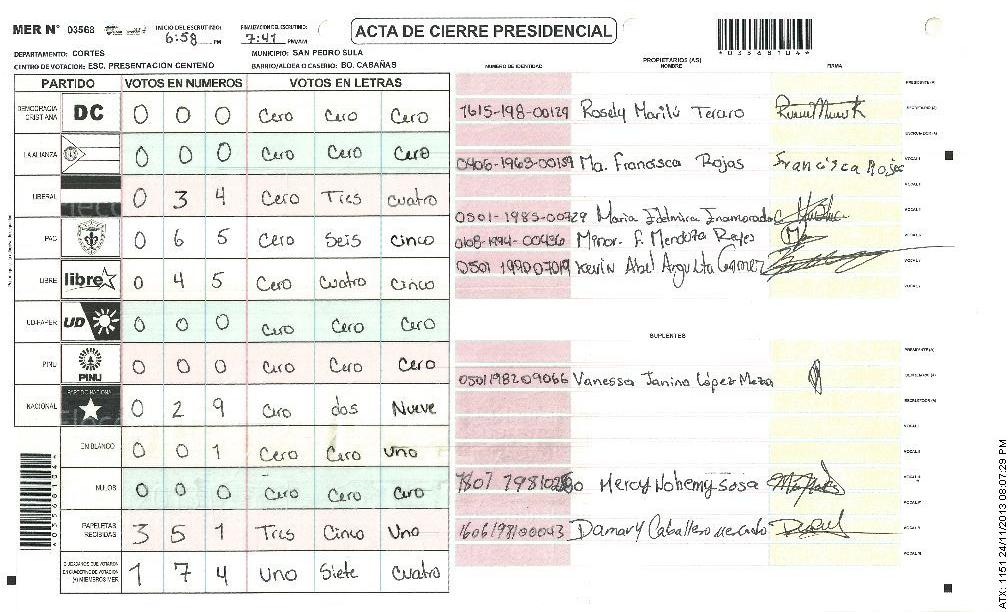 MER N° 03568 INICIO DEL ESCRUTINIO: 6:58 PM FINALIZACION DEL ESCRUTINIO: 7:41 PM/AM ACTA DE CIERRE PRESIDENCIAL
*0356810 4*
DEPARTAMENTO: CORTES MUNICIPIO: SAN PEDRO SULA
CENTRO DE VOTACION: ESC. PRESENTACION CENTENO BARRIO/ALDEA O CASERIO: BO. CABAÑAS
PARTIDO VOTOS EN NUMEROS VOTOS EN LETRAS
DEMOCRACIA CRISTIANA DC 0 0 0 Cero Cero Cero
LA ALIANZA 0 0 0 Cero Cero Cero
LIBERAL 0 3 4 Cero Tres cuatro
PAC 0 6 5 Cero Seis cinco
LIBRE libre 0 4 5 Cero Cuatro Cinco
UD-FAPER UD 0 0 0 Cero Cero Cero
PINU PINU 0 0 0 Cero Cero Cero
NACIONAL PARTIDO NACIONAL 0 2 9 Cero dos Nueve
EN BLANCO 0 0 1 Cero Cero uno
NULOS 0 0 0 Cero Cero Cero
PAPELETAS RECIBIDAS 3 5 1 Tres Cinco Uno
CIUDADANOS QUE VOTARON EN CUADERNO DE VOTACION (+) MIEMBROS MER 1 7 4 Uno Siete Cuatro
NUMERO DE IDENTIDAD PROPIETARIOS (AS) NOMBRE FIRMA
PRESIDENTE (A)
SECRETARIO (A)
Rosely Marilú
ESCRUTADOR (A)
VOCAL I
Ma. Francisca Rojas Francisca Rojas
0501-1985-00729 Maria Edelmira Enamorado
0108-1994-00436 Minor. F. Mendoza Reyes
Kevin Abel Gomez
SUPLENTES
PRESIDENTE (A)
SECRETARIO (A)
0501198209066 Vanessa Janina López Meza
ESCRUTADOR (A)
Mercy Nohemy Sosa
1606198100043 Damary Caballero
ATX: 1151 24/11/2013 08:07:29 PM